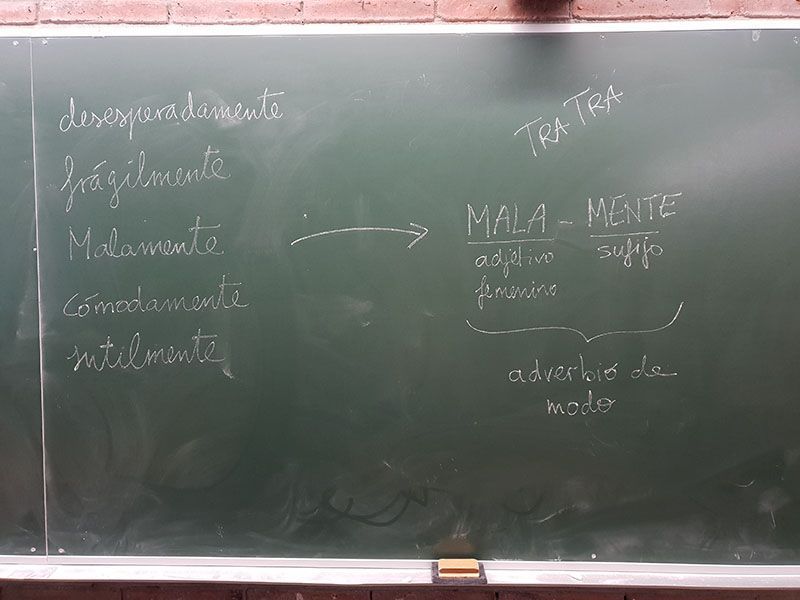 desesperadamente
frágilmente
Malamente
cómodamente
sutilmente
TRA TRA
MALA - MENTE
adjetivo sufijo
femenino
adverbio de
modo